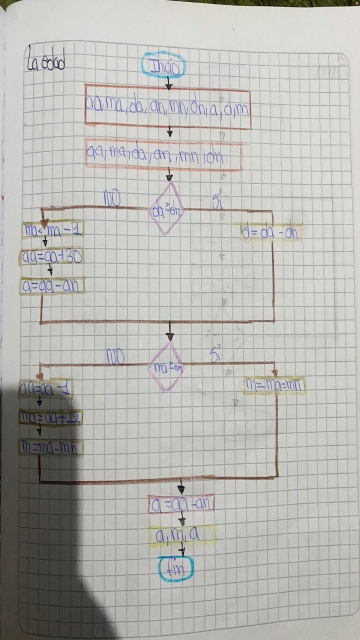 La edad
Inicio
aa, ma, da, an, mn, dn, a, d, m
aa, ma, da, an, mn, dn
NO
da≥dn
Si
ma=ma-1
d=da-dn
aa=aa+30
a=aa-an
NO
ma≥mn
Si
aa=aa-1
m=ma=mn
ma=aa+12
m=ma-mn
a=aa-an
a, m, a
fin